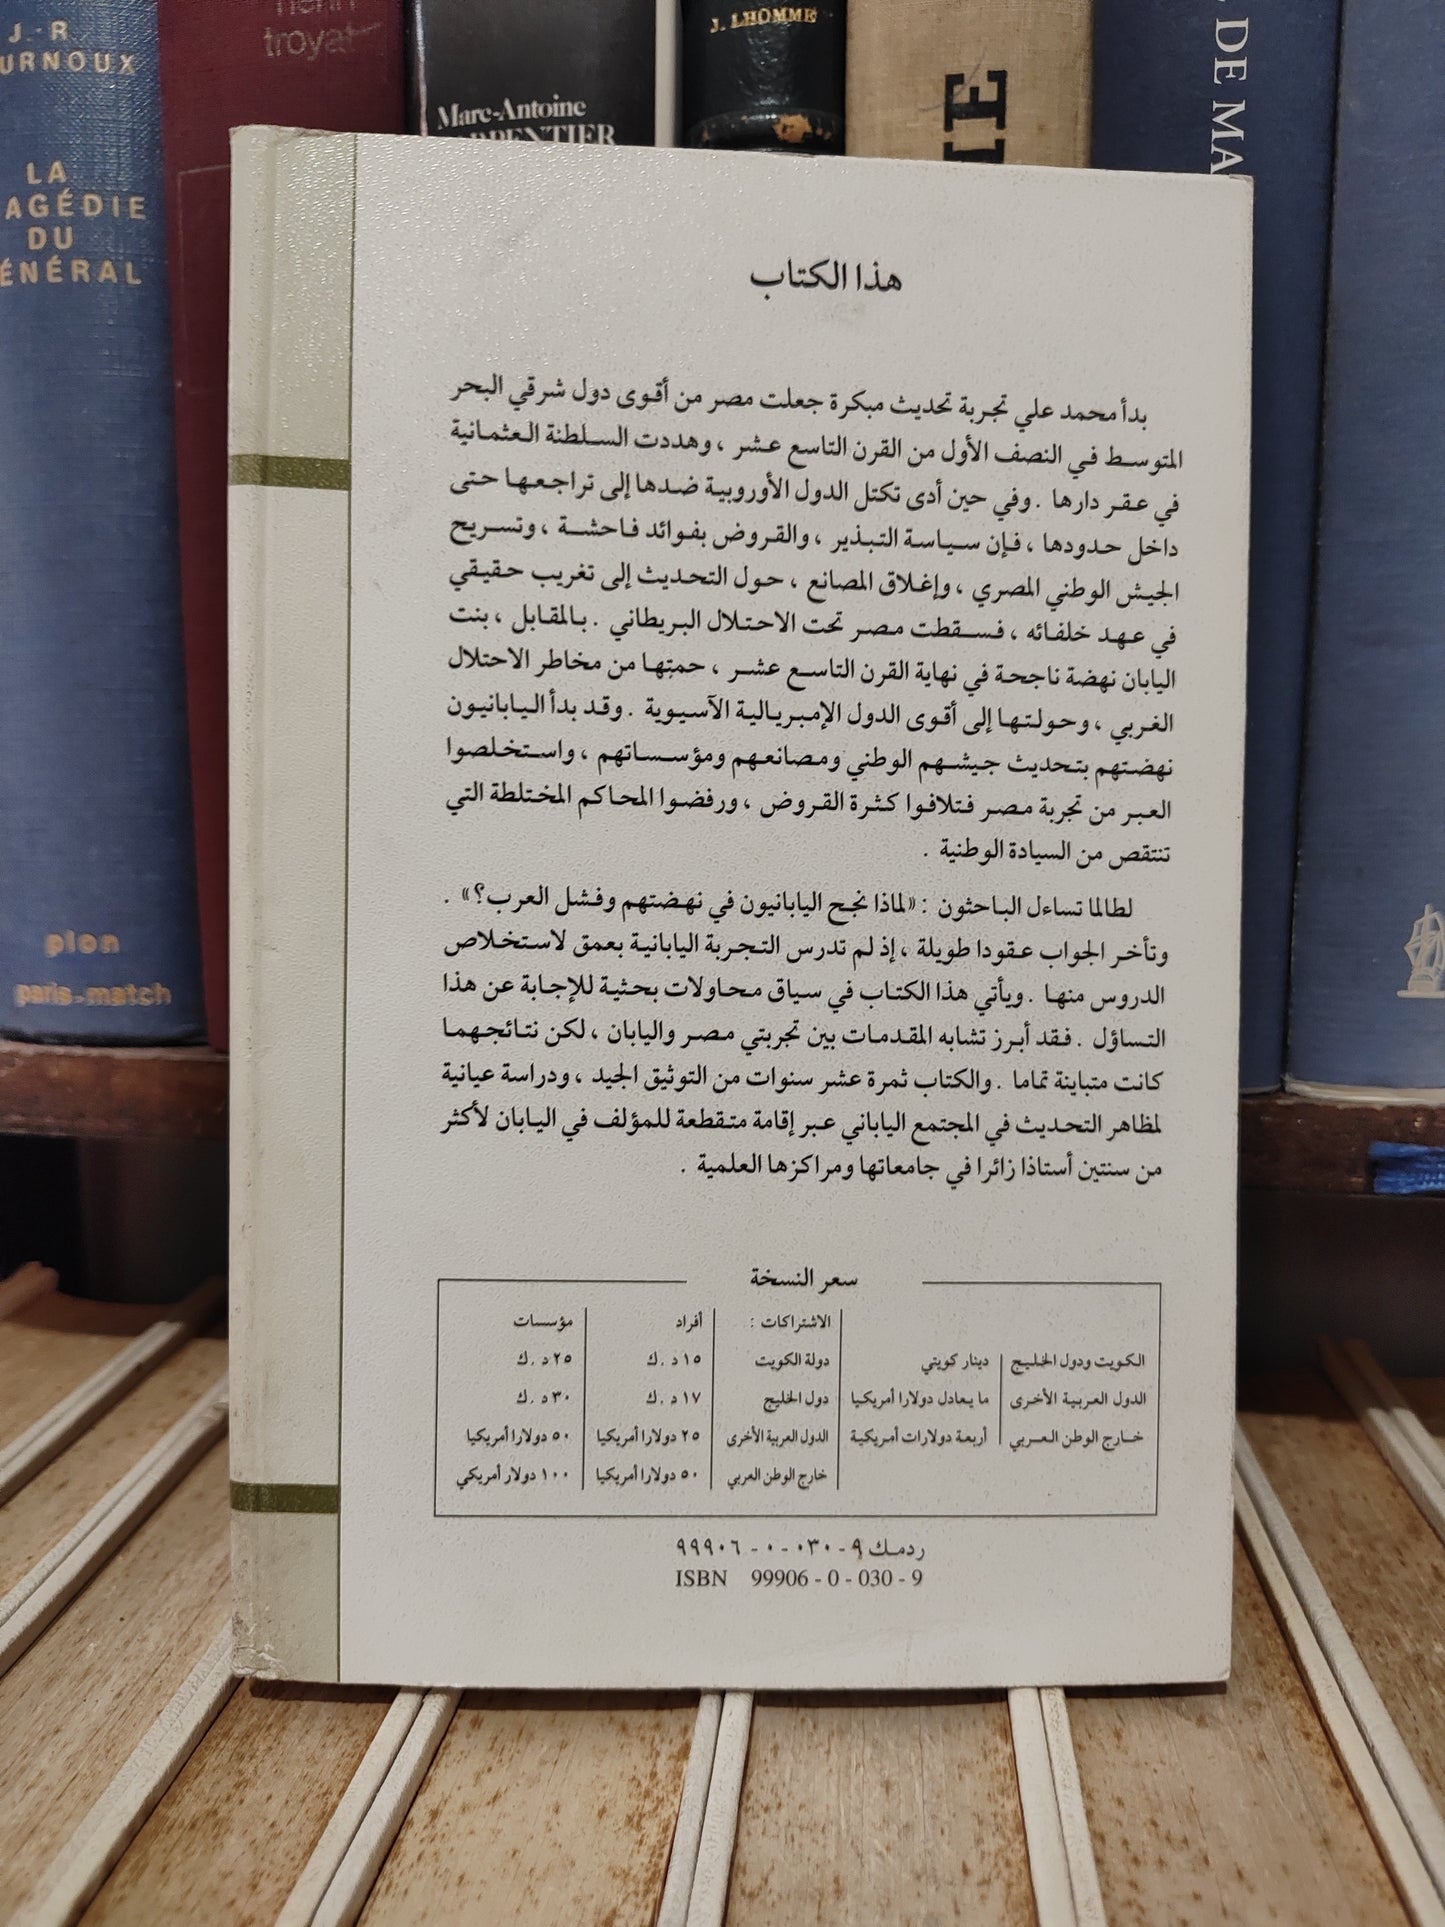 J.-R
URNOUX
LA
AGÉDIE
DU
ÉNÉRAL
plon
paris-match
troyat
Marc-Antoine
J. LHOMME
DE MA
هذا الكتاب
بدأ محمد علي تجربة تحديث مبكرة جعلت مصر من أقوى دول شرقي البحر
المتوسط في النصف الأول من القرن التاسع عشر ، وهددت السلطنة العثمانية
في عقر دارها . وفي حين أدى تكتل الدول الأوروبية ضدها إلى تراجعها حتى
داخل حدودها ، فإن سياسة التبذير ، والقروض بفوائد فاحشة ، وتسريح
الجيش الوطني المصري ، وإغلاق المصانع ، حول التحديث إلى تغريب حقيقي
في عهد خلفائه ، فسقطت مصر تحت الاحتلال البريطاني . بالمقابل ، بنت
اليابان نهضة ناجحة في نهاية القرن التاسع عشر ، حمتها من مخاطر الاحتلال
الغربي ، وحولتها إلى أقوى الدول الإمبريالية الآسيوية . وقد بدأ اليابانيون
نهضتهم بتحديث جيشهم الوطني ومصانعهم ومؤسساتهم ، واستخلصوا
العبر من تجربة مصر فتلافوا كثرة القروض ، ورفضوا المحاكم المختلطة التي
تنتقص من السيادة الوطنية .
لطالما تساءل الباحثون : «لماذا نجح اليابانيون في نهضتهم وفشل العرب؟» .
وتأخر الجواب عقودا طويلة ، إذ لم تدرس التجربة اليابانية بعمق لاستخلاص
الدروس منها . ويأتي هذا الكتاب في سياق محاولات بحثية للإجابة عن هذا
التساؤل . فقد أبرز تشابه المقدمات بين تجربتي مصر واليابان ، لكن نتائجهما
كانت متباينة تماما . والكتاب ثمرة عشر سنوات من التوثيق الجيد ، ودراسة عيانية
لمظاهر التحديث في المجتمع الياباني عبر إقامة متقطعة للمؤلف في اليابان لأكثر
من سنتين أستاذا زائرا في جامعاتها ومراكزها العلمية .
سعر النسخة
الاشتراكات : أفراد مؤسسات
الكويت ودول الخليج دينار كويتي دولة الكويت ١٥ د . ك ٢٥ د . ك
الدول العربية الأخرى ما يعادل دولارا أمريكيا دول الخليج ١٧ د . ك ٣٠ د . ك
خارج الوطن العربي أربعة دولارات أمريكية الدول العربية الأخرى ٢٥ دولارا أمريكيا ٥٠ دولارا أمريكيا
خارج الوطن العربي ٥٠ دولارا أمريكيا ١٠٠ دولار أمريكي
ردمك ٩ - ٠٣٠ - ٠ - ٩٩٩٠٦
ISBN 99906 - 0 - 030 - 9